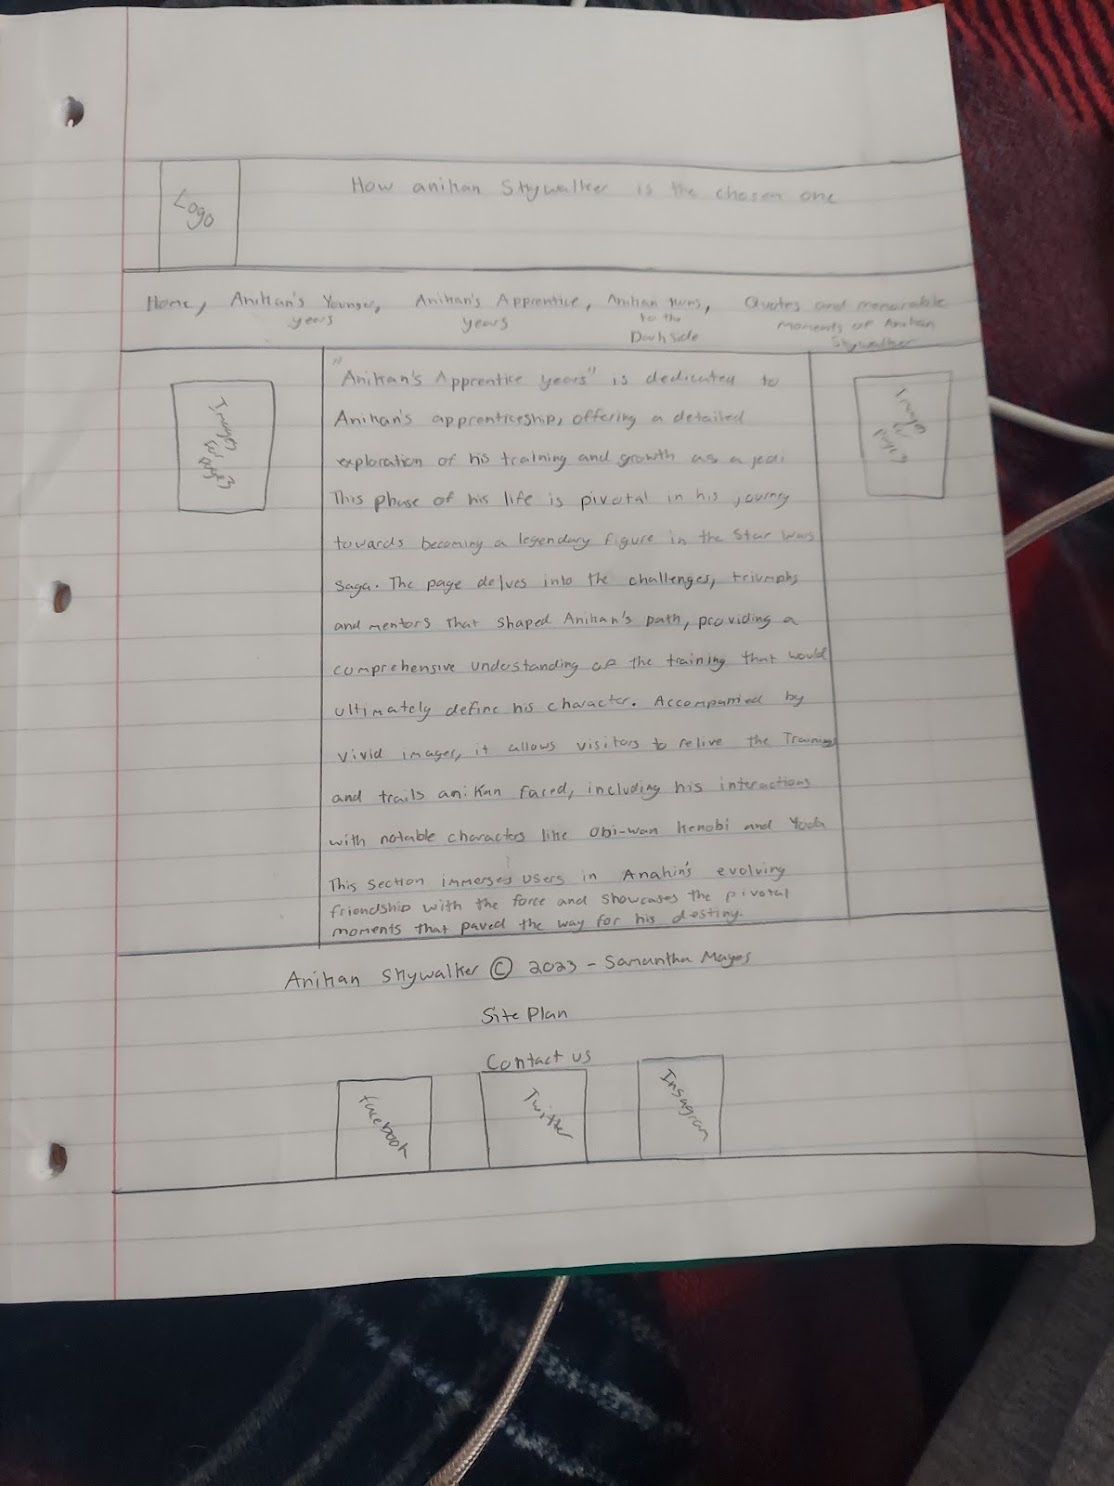 Logo
How anikan Skywalker is the chosen one
Home, Anikan's Younger, Anikan's Apprentice, Anikan turns, Quotes and memorable
years years to the Moments of Anikan
Dark Side Skywalker
"Anikan's Apprentice years" is dedicated to
Anikan's apprenticeship, offering a detailed
exploration of his training and growth as a jedi.
This phase of his life is pivotal in his journy
towards becoming a legendary figure in the Star Wars
Saga. The page delves into the challenges, triumphs
and mentors that shaped Anikan's path, providing a
comprehensive understanding of the training that would
ultimately define his character. Accompanied by
vivid images, it allows visitors to relive the Training
and trails anikan faced, including his interactions
with notable charactes like Obi-wan Kenobi and Yoda
This section immerses users in Anakin's evolving
friendship with the force and showcases the pivotal
moments that paved the way for his destiny.
Anikan Skywalker © 2023 - Samantha Mayes
Site Plan
Contact us
Facebook
Twitter
Insagram